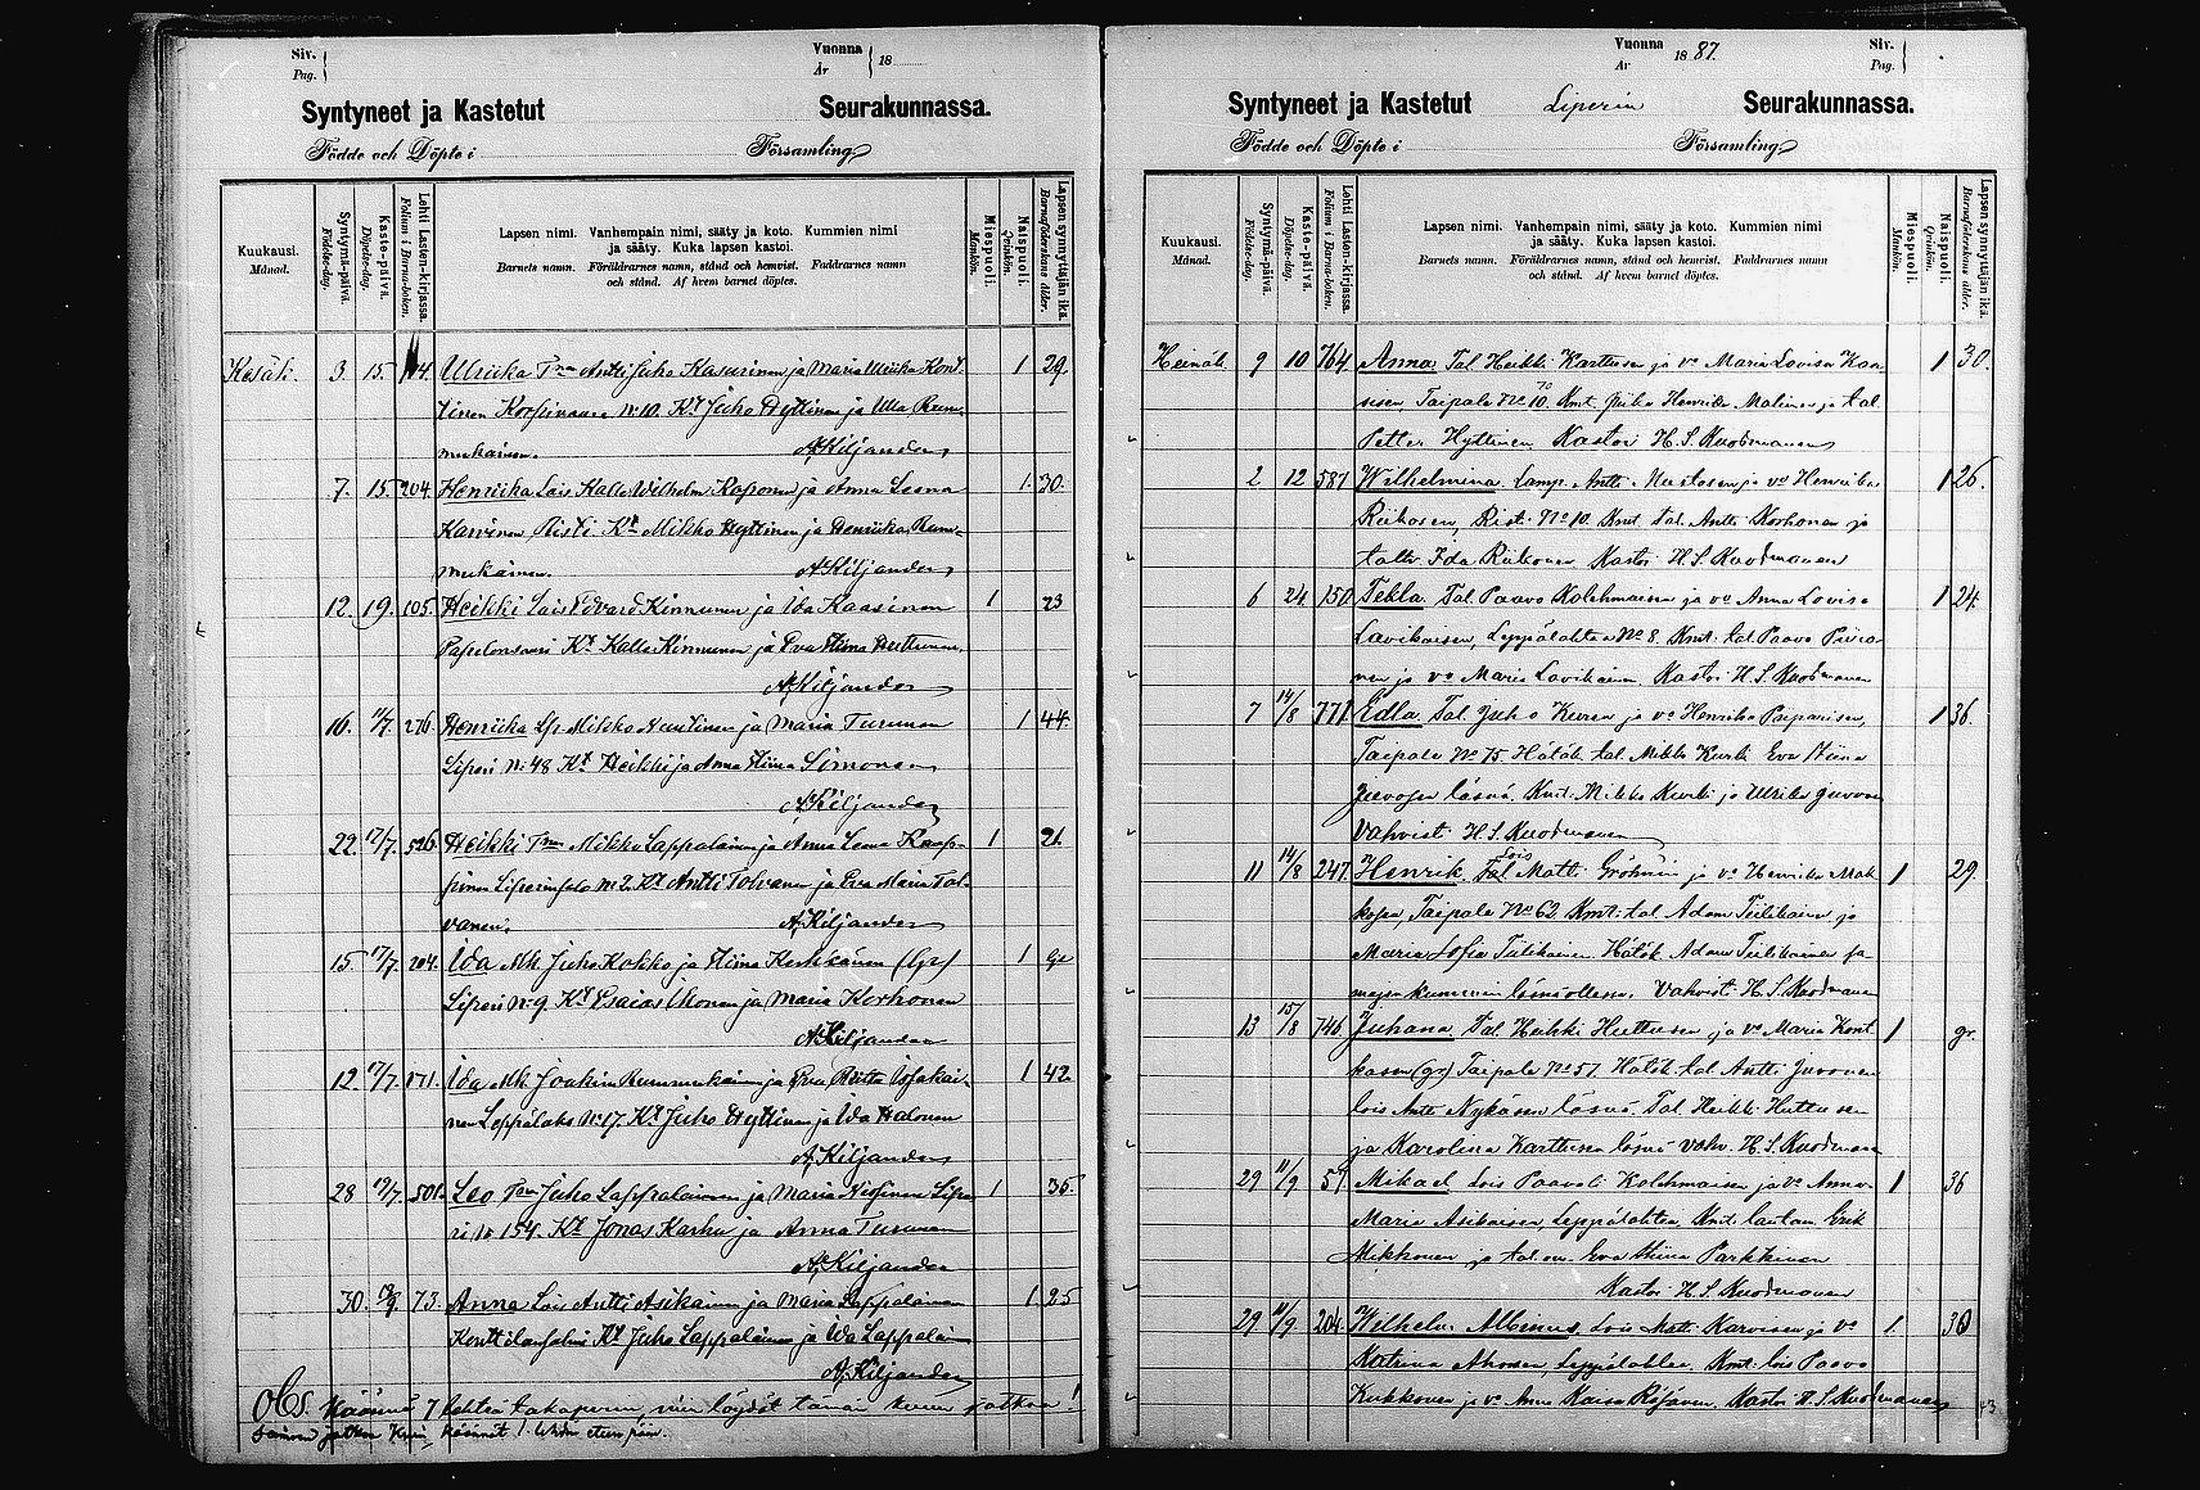 Siv.
Pag.
Vuonna
År
18
Syntyneet ja Kastetut Seurakunnassa.
Födde och Döpte i Församling
Kuukausi.
Månad.
Syntymä-päivä.
Födelse-dag.
Kaste-päivä.
Döpelse-dag.
Lehti Lasten-kirjassa.
Folium i Barna-boken.
Lapsen nimi. Vanhempain nimi, sääty ja koto. Kummien nimi
ja sääty. Kuka lapsen kastoi.
Barnets namn. Föräldrarnes namn, stånd och hemvist. Faddrarnes namn
och stånd. Af hvem barnet döptes.
Miespuoli.
Mankön.
Naispuoli.
Qvinkön.
Lapsen synnyttäjän ikä.
Barnaföderskans ålder.
Kesäk. 3. 15. Ulriika Antti Juho Kasurinen ja Maria Ulriika Kont-
tinen N:10. Kt Juho Hyttinen ja Ulla Rum-
mukainen. A. Kiljander
7. 15. 204. Henriika Lois Kalle Wilhelm Kaponen ja Anna Leena 1. 30.
Karvinen Risti. Kt Mikko Hyttinen ja Henriika Rum-
mukainen. A. Kiljander
12. 19. 105. Heikki Lois Edvard Kinnunen ja Ida Kaasinen 1 23
Kt Kalle Kinnunen ja Eva Stina Huttunen.
A. Kiljander
16. 11/7. 276. Henriika Mikko Nuutinen ja Maria Turunen 1 44.
Liperi N:48 Kt Heikki ja Anna Stina Simonen
A. Kiljander
22. 17/7. 526. Heikki Mikko Lappalainen ja Anna Leena 1 21.
N:2. Kt Antti Tolvanen ja Eva Maria Tol-
vanen. A. Kiljander
15. 17/7. 204. Ida Mk. Juho Kokko ja Stina (Gr) 1 Gr
Liperi N:9 Kt Esaias Ikonen ja Maria Korhonen
A. Kiljander
12. 17/7. 171. Ida Mk. Joakim Rummukainen ja Eva Riitta 1 42
nen Leppälaks N:17. Kt Juho Hyttinen ja Ida Halonen
A. Kiljander
28 19/7. 501. Leo Juho Lappalainen ja Maria Lipe- 1 35.
ri N 154. Kt Jonas Karhu ja Anna Turunen
A. Kiljander
30. 73. Anna Lois Antti Asikainen ja Maria Lappalainen 1. 25
Kt Juho Lappalainen ja Ida Lappalain
A. Kiljander
Obs. Käännä 7 lehteä takaperin, niin löydät tämän kuun jatkoa!
Vuonna
År
1887.
Siv.
Pag.
Syntyneet ja Kastetut Liperin Seurakunnassa.
Födde och Döpte i Församling
Kuukausi.
Månad.
Syntymä-päivä.
Födelse-dag.
Kaste-päivä.
Döpelse-dag.
Lehti Lasten-kirjassa.
Folium i Barna-boken.
Lapsen nimi. Vanhempain nimi, sääty ja koto. Kummien nimi
ja sääty. Kuka lapsen kastoi.
Barnets namn. Föräldrarnes namn, stånd och hemvist. Faddrarnes namn
och stånd. Af hvem barnet döptes.
Miespuoli.
Mankön.
Naispuoli.
Qvinkön.
Lapsen synnyttäjän ikä.
Barnaföderskans ålder.
Heinäk. 9 10 764. Anna. Tal. Heikki Karttusen ja vo Maria Lovisa Kaa- 1 30.
sisen, Taipale No 10. Kmt. Henrika Malinen ja tal.
Petter Hyttinen Kastoi H. S. Kuosmanen
2 12 587 Wilhelmina. Lamp. Antti Mustosen ja vo Henrika 1 26.
Riikosen, Risti No 10. Kmt tal. Antti Korhonen ja
taltr. Ida Riikonen Kastoi H. S. Kuosmanen
6 24. 150 Tekla. Tal. Paavo Kolehmaisen ja vo Anna Lovisa 1 24.
Lavikaisen, Leppälahtea No 8. Kmt. tal. Paavo Piiro-
nen ja vo Maria Lavikainen Kastoi H. S. Kuosmanen
7 14/8 771. Edla. Tal. Juho Kuren ja vo Henrika Piiparisen, 1 36.
Taipale No 75. Hätäk. tal. Mikko Kurki Eva Stiina
läsnä. Kmt. Mikko Kurki ja Ulrika Juvonen
Vahvisti H. S. Kuosmanen
11 14/8 247. Henrik. Lois Matti Gröhnin ja vo Henrika Mak- 1 29.
Taipale No 62. Kmt: tal. Adam Tiilikainen ja
Maria Sofia Tiilikainen. Hätäk. Adam Tiilikainen sa-
majen kummien läsnäollessa. Vahvisti H. S. Kuosmanen
13 15/8 746. Juhana. Tal. Heikki Huttusen ja vo Maria Kont- 1 gr.
kasen (gr) Taipale No 57. Hätäk. tal. Antti Juvonen
lois Antti Nykäsen läsnä. Tal. Heikki Huttusen
ja Karolina Karttusen läsnä Vahv. H. S. Kuosmanen
29 11/9 57. Mikael Lois Paavali Kolehmaisen ja vo Anna 1 36
Maria Asikaisen Leppälahtea, Kmt. lautam. Erik
Mikkonen ja tal. em. Eva Stiina Parkkinen
Kastoi H. S. Kuosmanen
29 11/9 204. Wilhelm Albinus, Lois Matti Karvisen ja vo 1. 30
Katrina Ahosen, Leppälahtea. Kmt: lois Paavo
Kukkonen ja vo Anna Kaisa Räsänen. Kastoi H. S. Kuosmanen